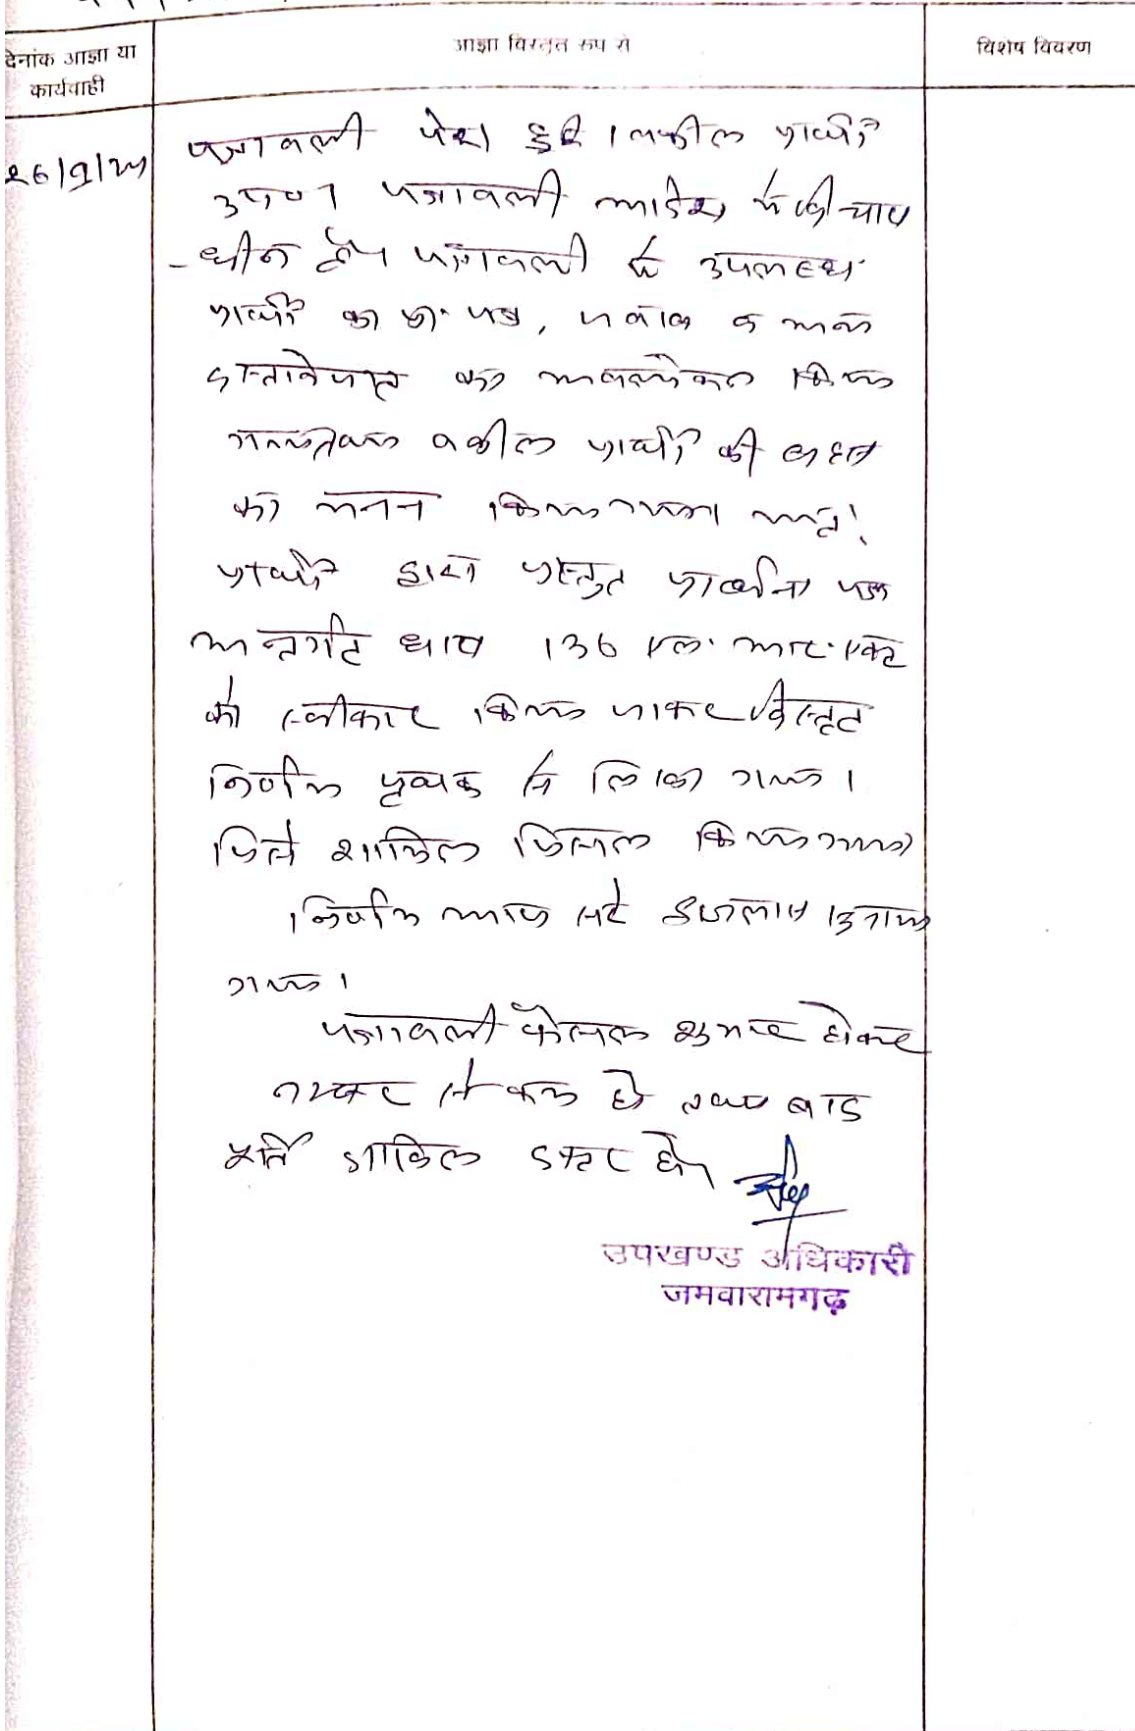 दिनांक आज्ञा या
कार्यवाही
आज्ञा विस्तृत रूप से
विशेष विवरण
पत्रावली पेश हुई । वकील प्रार्थी
26/9/24
उप0 । पत्रावली आदेश में विचारा
-धीन है। पत्रावली में उपलब्ध
प्रार्थी का प्रा. पत्र, जवाब व अन्य
दस्तावेजात का अवलोकन किया
गया वकील प्रार्थी की बहस
का मनन किया गया अतः
प्रार्थी द्वारा प्रस्तुत प्रार्थना पत्र
अन्तर्गत धारा 136 एल. आर. एक्ट
को स्वीकार किया जाकर विस्तृत
निर्णय पृथक से लिखा गया ।
शामिल मिसल किया गया
निर्णय आज सरे इजलास सुनाया
गया ।
पत्रावली फैसल शुमार होकर
नम्बर से कम हो तथा बाद
पूर्ति दाखिल दफ्तर हो।
उपखण्ड अधिकारी
जमवारामगढ़